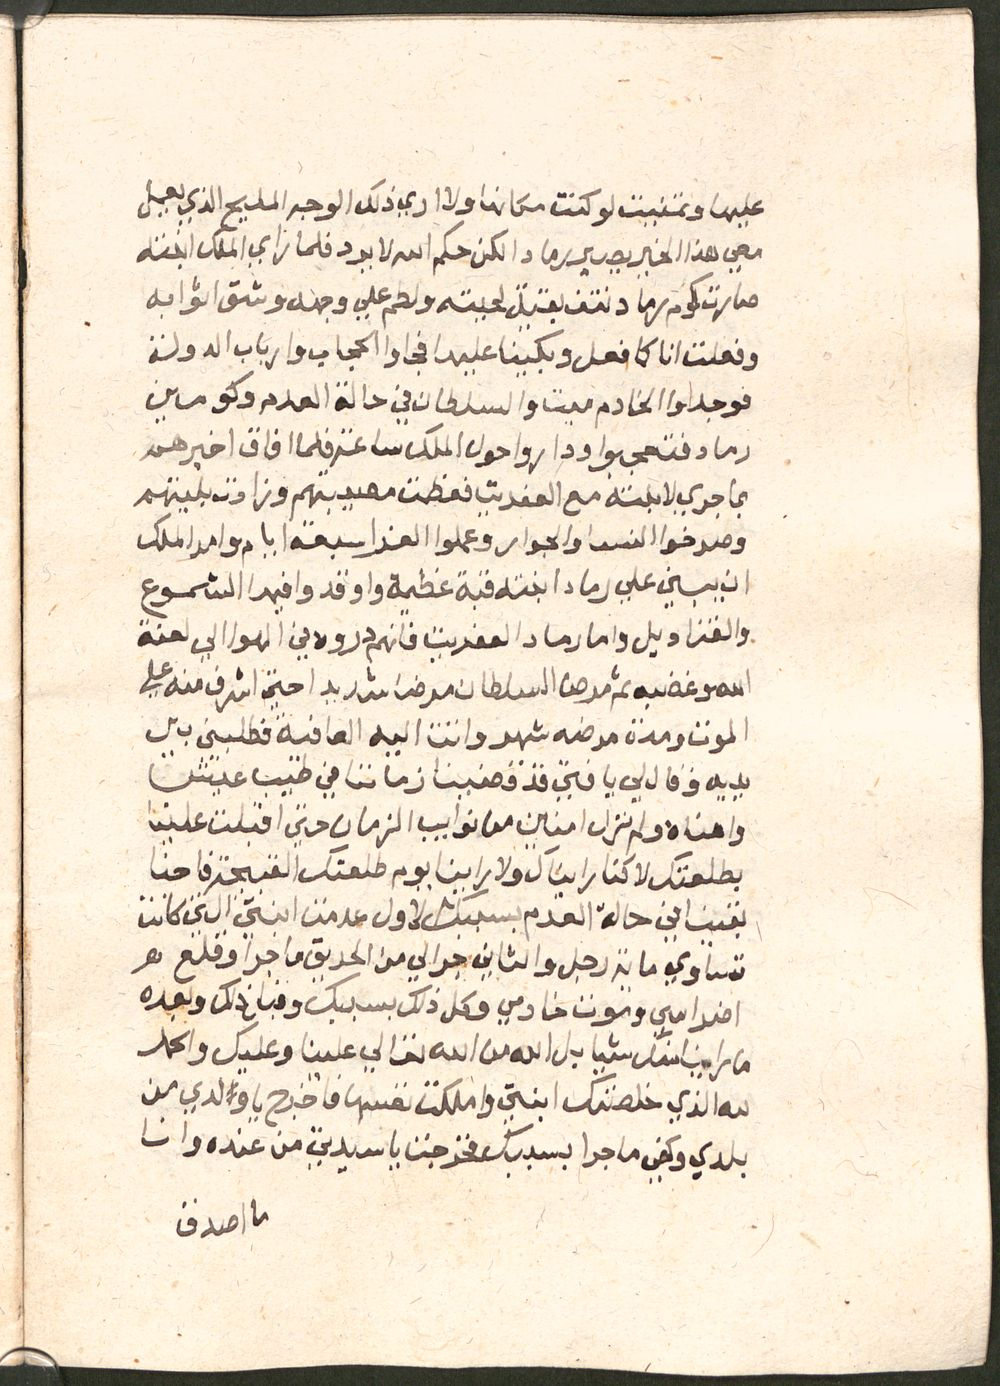 عليها وتمنيت لو كنت مكانها ولا اري ذلك الوجه المليح الذي يعمل
معي هذا الخير يصير رمادا لكن حكم الله لا يرد فلما راي الملك ابنته
صارت كوم رماد نتف بقيت لحيته ولطم علي وجهه وشق اثوابه
وفعلت انا كما فعل وبكينا عليها فجاوا الحجاب وارباب الدولة
فوجدوا الخادم ميت والسلطان في حالة العدم وكومين
رماد فتعجبوا وداروا حول الملك ساعة فلما افاق اخبرهم
بما جري لابنته مع العفريت فعظمت مصيبتهم وزادت بليتهم
وصرخوا النسا والجوار وعملوا العزا سبعة ايام وامر الملك
ان يبني علي رماد ابنته قبة عظيمة واوقدوا فيها الشموع
والقناديل واما رماد العفريت فانهم دروه في الهوا الي لعنة
الله وغضبه ثم مرض السلطان مرضا شديدا حتي اشرف منه علي
الموت ومدة مرضه شهر واتت اليه العافية فطلبني بين
يديه وقال لي يا فتي قد قضينا زماننا في طيب عيش
واهناه ولم نزل امنين من نوايب الزمان حتي اقبلت علينا
بطلعتك لا كنا رايناك ولا راينا يوم طلعتك القبيحة فاحنا
بقينا في حالة العدم بسببك الاول عدمت ابنتي التي كانت
تساوي ماية رجل والثاني جرالي من الحريق ما جرا وقلع
اضراسي وموت خادمي وكل ذلك بسببك وقبل ذلك وبعده
ما راينا منك شيا بل الله من الله تعالي علينا وعليك والحمد
لله الذي خلصتك ابنتي واهلكت نفسها فاخرج يا ولدي من
بلدي وكفي ما جرا بسببك فخرجت يا سيدتي من عنده وانا
ما اصدق